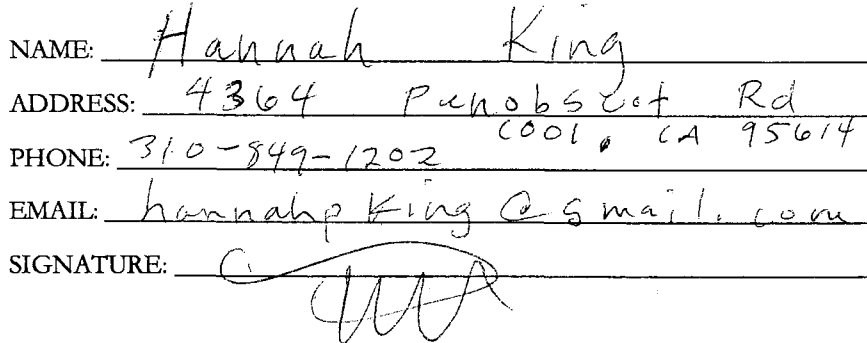 NAME: Hannah King
ADDRESS: 4364 Penobscot Rd
Cool, CA 95614
PHONE: 310-849-1202
EMAIL: hannahpking@gmail.com
SIGNATURE: